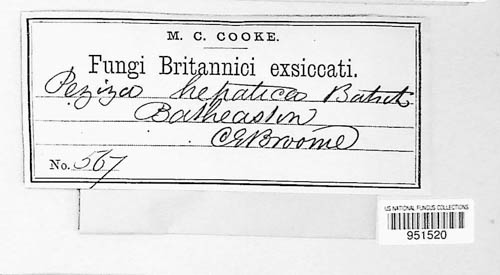 M. C. COOKE.
Fungi Britannici exsiccati.
Peziza hepatica Batsch
Batheaston
CEBroome
No. 567
US NATIONAL FUNGUS COLLECTIONS
951520